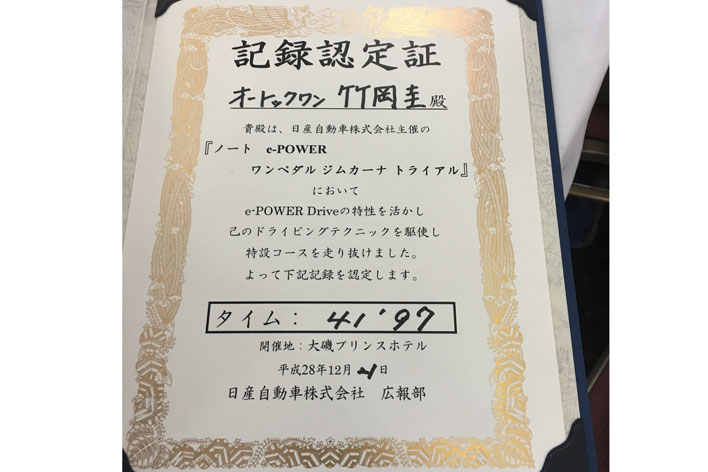 記録認定証
オートックワン 竹岡圭殿
貴殿は、日産自動車株式会社主催の
『ノート e-POWER
ワンペダル ジムカーナ トライアル』
において
e-POWER Driveの特性を活かし
己のドライビングテクニックを駆使し
特設コースを走り抜けました。
よって下記記録を認定します。
タイム： 41'97
開催地：大磯プリンスホテル
平成28年12月 日
日産自動車株式会社 広報部